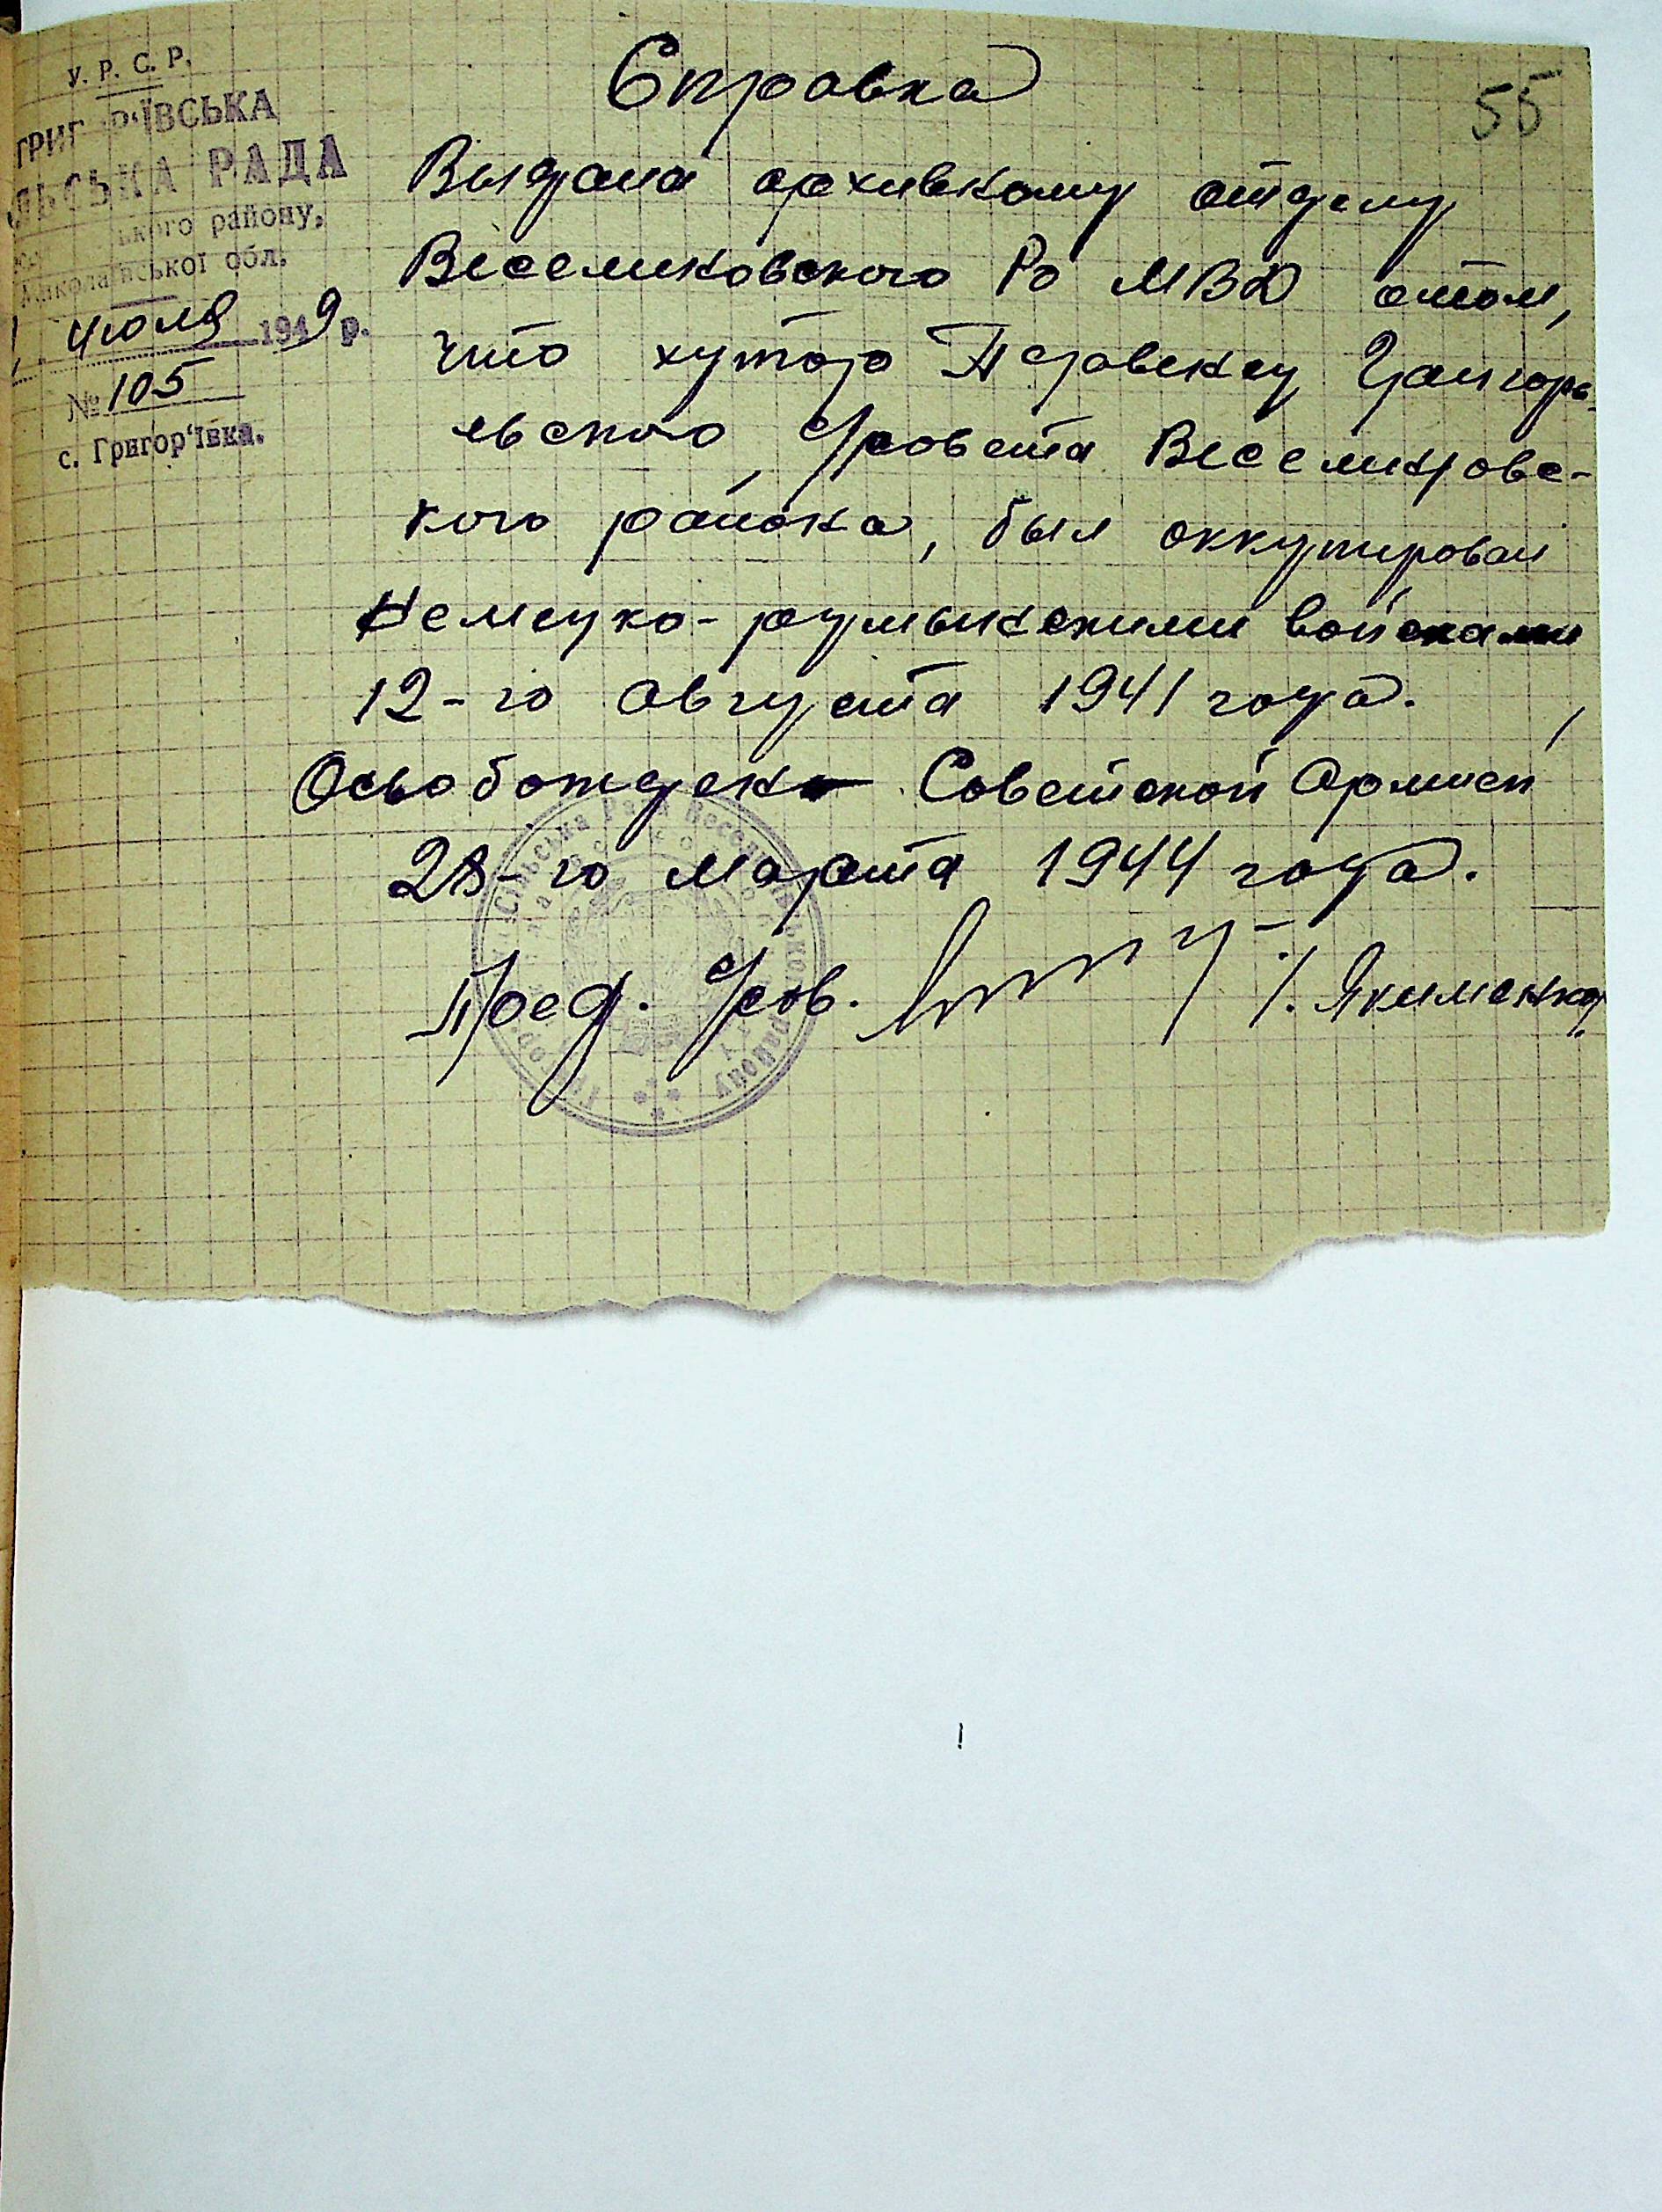 55
У. Р. С. Р.
ГРИГ Р'ЇВСЬКА
ЛЬСЬКА РАДА
ького району,
Миколаївської обл.
Июля 1949 р.
№ 105
с. Григор'ївка.
Справка
Выдана архивному отделу
Веселиновского Ро МВД отом,
что хутор
льского, с/совета Веселиновс-
кого района, был оккупирован
Немецко-румынскими войсками
12-го августа 1941 года.
Освобожден Советской Армией
28-го марта 1944 года.
Пред. с/сов. /. Якименко/